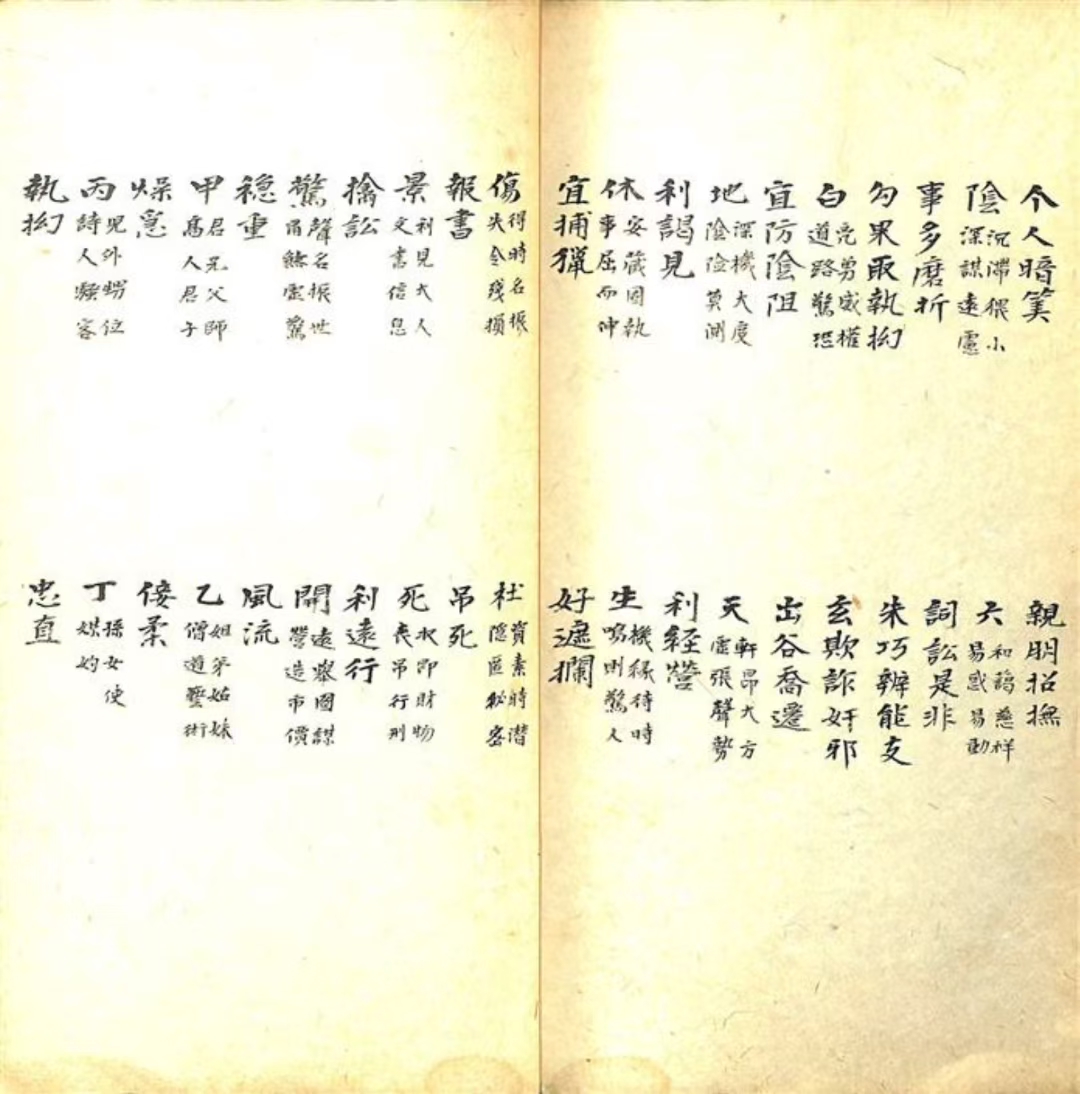 令人暗筭
親朋招撫
陰沉滯猥小
深謀遠慮
六和藹慈祥
易惑易動
事多磨折
詞訟是非
勾果敢執拗
朱巧辨能支
白亮勇威權
道路驚恐
玄欺詐奸邪
宜防陰阻
出谷喬遷
地深機大度
陰險莫測
天軒昂大方
虛張聲勢
利謁見
利經營
休安葳固執
事屈而伸
生機緣待時
鳴則驚人
宜捕獵
好遮攔
傷得時名振
失令殘損
杜資素時潜
隱匿秘密
報書
吊死
景利見大人
文書信息
死水即財物
丧吊行刑
擒訟
利遠行
驚聲名振世
虛驚
開遠舉國謀
營造市價
穩重
風流
甲君兄父師
高人君子
乙姐弟姑妹
僧道醫術
燥急
倭柔
丙兒外甥位
詩人騷客
丁孫女使
媒妁
執拗
忠直